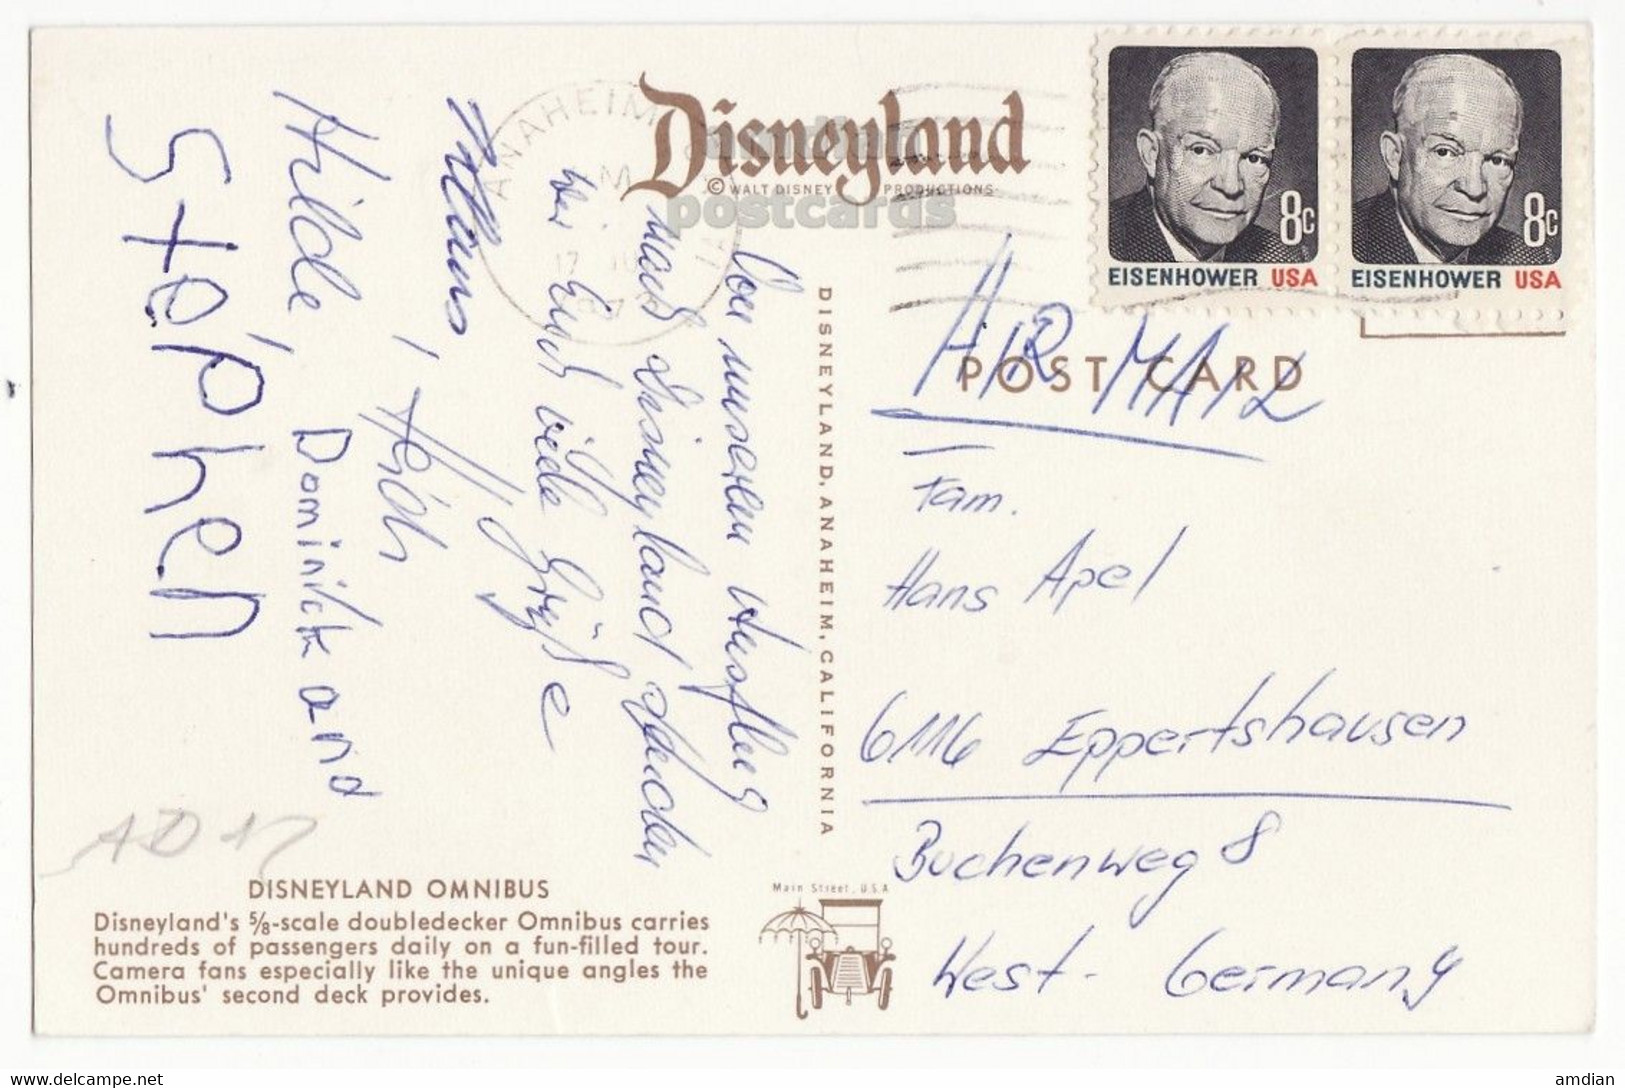 Disneyland
© WALT DISNEY PRODUCTIONS
postcards
ANAHEIM
8c
EISENHOWER USA
8c
EISENHOWER USA
POST CARD
AIR MAIL
Fam.
Hans Apel
6116 Eppertshausen
Buchenweg 8
West-Germany
DISNEYLAND, ANAHEIM, CALIFORNIA
Von unserem Ausflug
nach Disneyland senden
wir Euch viele Grüße
Hilde, Dominick and
Stephen
DISNEYLAND OMNIBUS
Disneyland's 5/8-scale doubledecker Omnibus carries
hundreds of passengers daily on a fun-filled tour.
Camera fans especially like the unique angles the
Omnibus' second deck provides.
Main Street, U.S.A
www.delcampe.net
amdian